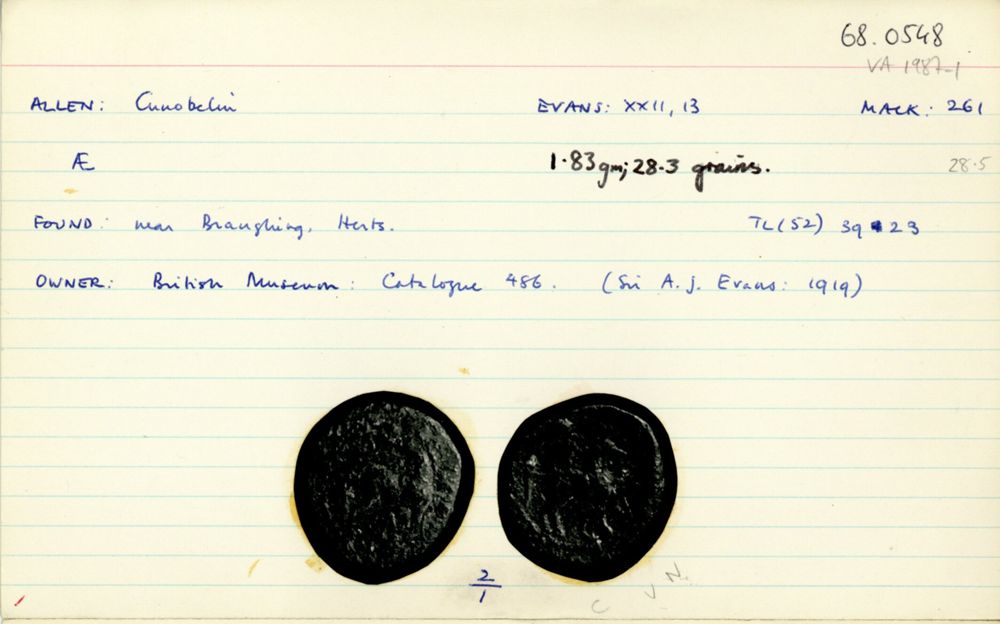 68.0548
VA 1987-1
ALLEN: Cunobelin EVANS: XXII, 13 MACK: 261
Æ 1.83gm; 28.3 grains. 28.5
FOUND: near Braughing, Herts. TL(52) 39 23
OWNER: British Museum: Catalogue 486. (Sir A.J. Evans: 1919)
2/1
C V N